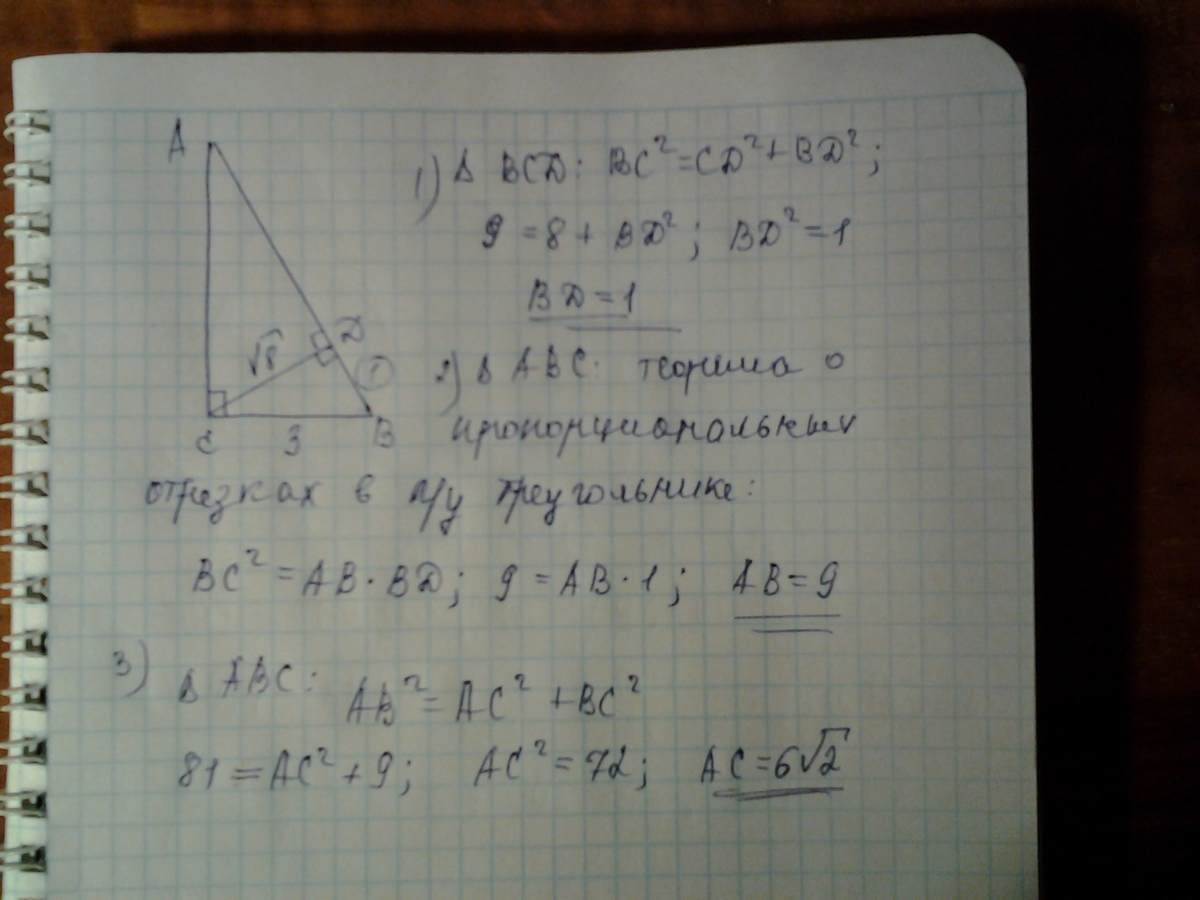 A
√8
D
1
C 3 B
1) Δ BCD: BC² = CD² + BD²;
9 = 8 + BD²; BD² = 1
BD = 1
2) Δ ABC: теорима о
пропорциональных
отрезках в п/у треугольнике:
BC² = AB · BD; 9 = AB · 1; AB = 9
3) Δ ABC: AB² = AC² + BC²
81 = AC² + 9; AC² = 72; AC = 6√2